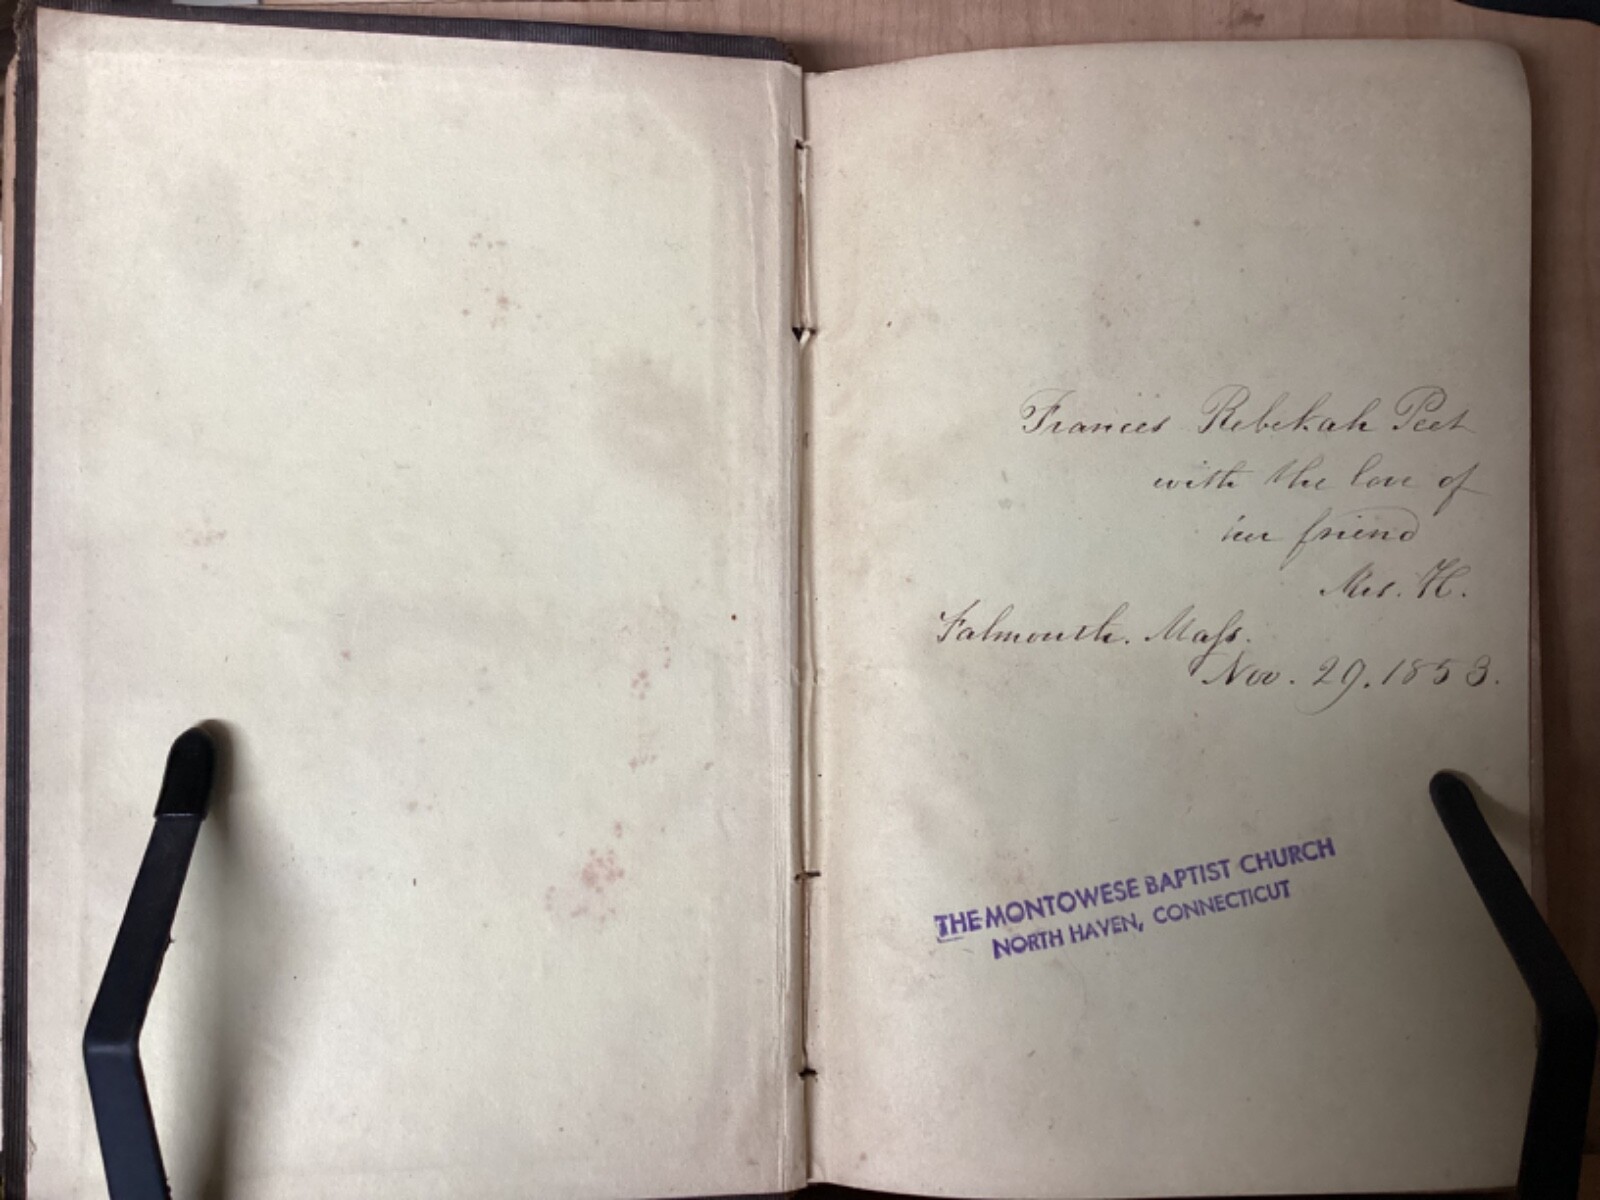 Frances Rebekah Peet
with the love of
her friend
Mrs. H.
Falmouth. Mass.
Nov. 29. 1853.
THE MONTOWESE BAPTIST CHURCH
NORTH HAVEN, CONNECTICUT